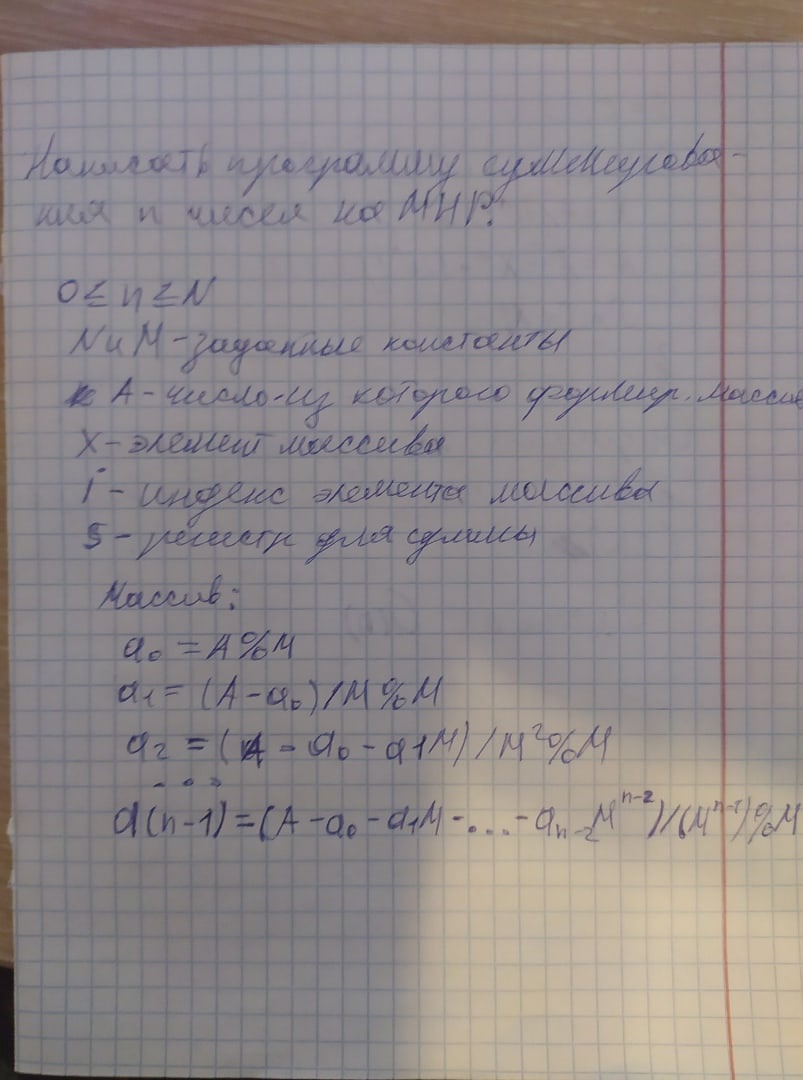 Написать программу суммирова-
ния n чисел на МНР.
0 ≤ n ≤ N
N и M - заданные константы
A - число - из которого формир. масси
X - элемент массива
i - индекс элемента массива
S - регистр для суммы
Массив:
a₀ = A%M
a₁ = (A-a₀)/M%M
a₂ = (A - a₀ - a1M)/M²%M
...
a(n-1) = (A - a₀ - a₁M - ... - aₙ₋₂Mⁿ⁻²)/(Mⁿ⁻¹)%M